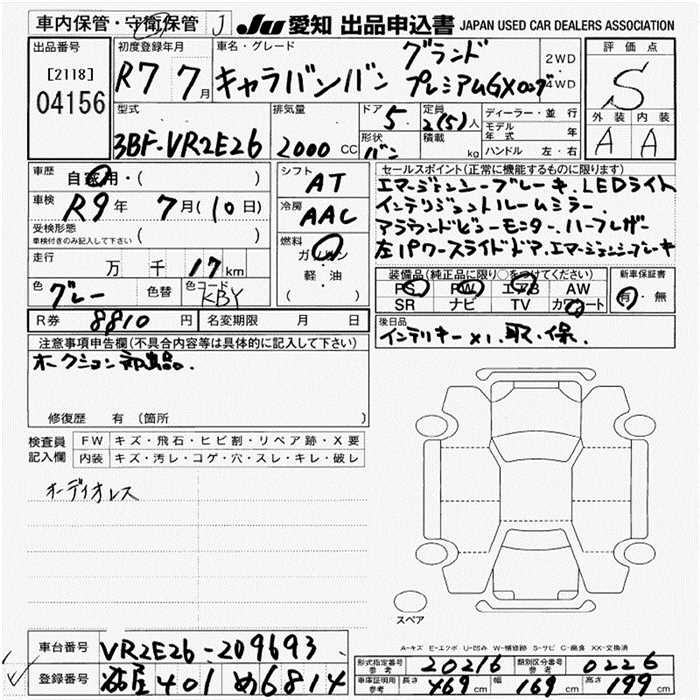 車内保管・守衛保管 J JU 愛知 出品申込書 JAPAN USED CAR DEALERS ASSOCIATION
出品番号 初度登録年月 車名・グレード グランド 2WD 評価点
[2118] R7 7月 キャラバンバン プレミアムGXロング 4WD S
04156 型式 排気量 ドア 5 定員 2(5)人 ディーラー・並行 外装 内装
3BF-VR2E26 2000 CC 形状 バン 積載 kg モデル年式 年 A A
ハンドル 左・右
車歴 自家用・( ) シフト AT セールスポイント(正常に機能するものに限ります)
車検 R9年 7月(10日) 冷房 AAC エマージェンシーブレーキ、LEDライト
インテリジェントルームミラー、
受検形態 ( ) アラウンドビューモニター、ハーフレザー
車検付きのみ記入して下さい
走行 万 千 17km 燃料 ガソリン 軽・油 ( ) 左1パワースライドドア、エマージェンシーブレーキ
色 グレー 色替 色コード KBY 装備品(純正品に限り○をつけてください) 新車保証書
PS PW エアB AW 有・無
SR ナビ TV カワシート
R券 8810円 名変期限 月 日 後日品
注意事項申告欄(不具合内容等は具体的に記入して下さい) インテリキー×1、取、保、
オークション 部品。
修復歴 有 (箇所
検査員記入欄 FW キズ・飛石・ヒビ割・リペア跡・X要
内装 キズ・汚レ・コゲ・穴・スレ・キレ・破レ
オーディオレス
スペア
A-キズ E-エクボ U-凹み W-補修跡 S-サビ C-腐食 XX-交換済
車台番号 VR2E26-209693
形式指定番号 参考 20216 類別区分番号 参考 0226
登録番号 401 め6814
車庫証明用 参考 長さ 469cm 幅 169cm 高さ 199cm